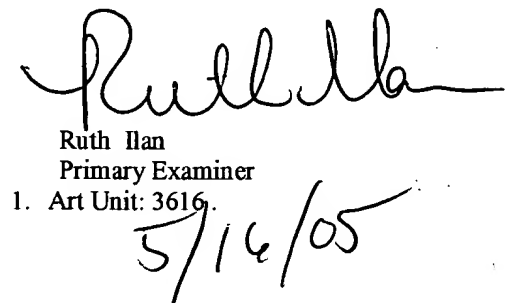 Ruth Ilan
Ruth Ilan
Primary Examiner
1. Art Unit: 3616.
5/16/05